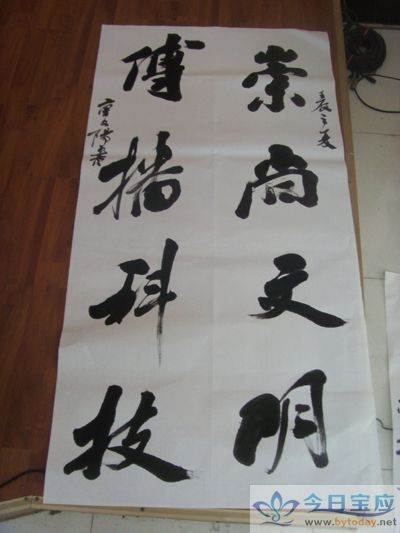 崇尚文明
傳播科技
今日宝应
www.bytoday.net